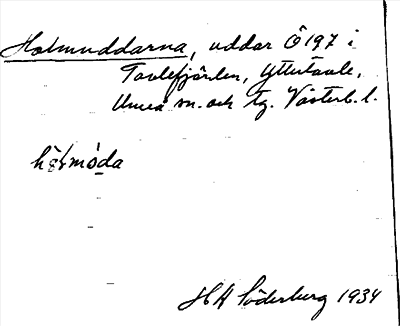 Holmuddarna, uddar Ö197 i
Tavlefjärden, Yttertavle,
Umeå sn. och tg. Västerb. l.
hó̜lmóda
HH Söderberg 1934